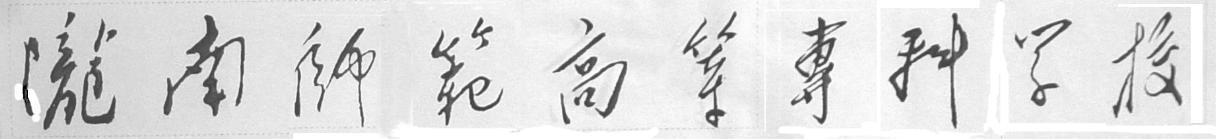 隴南師範高等專科学校